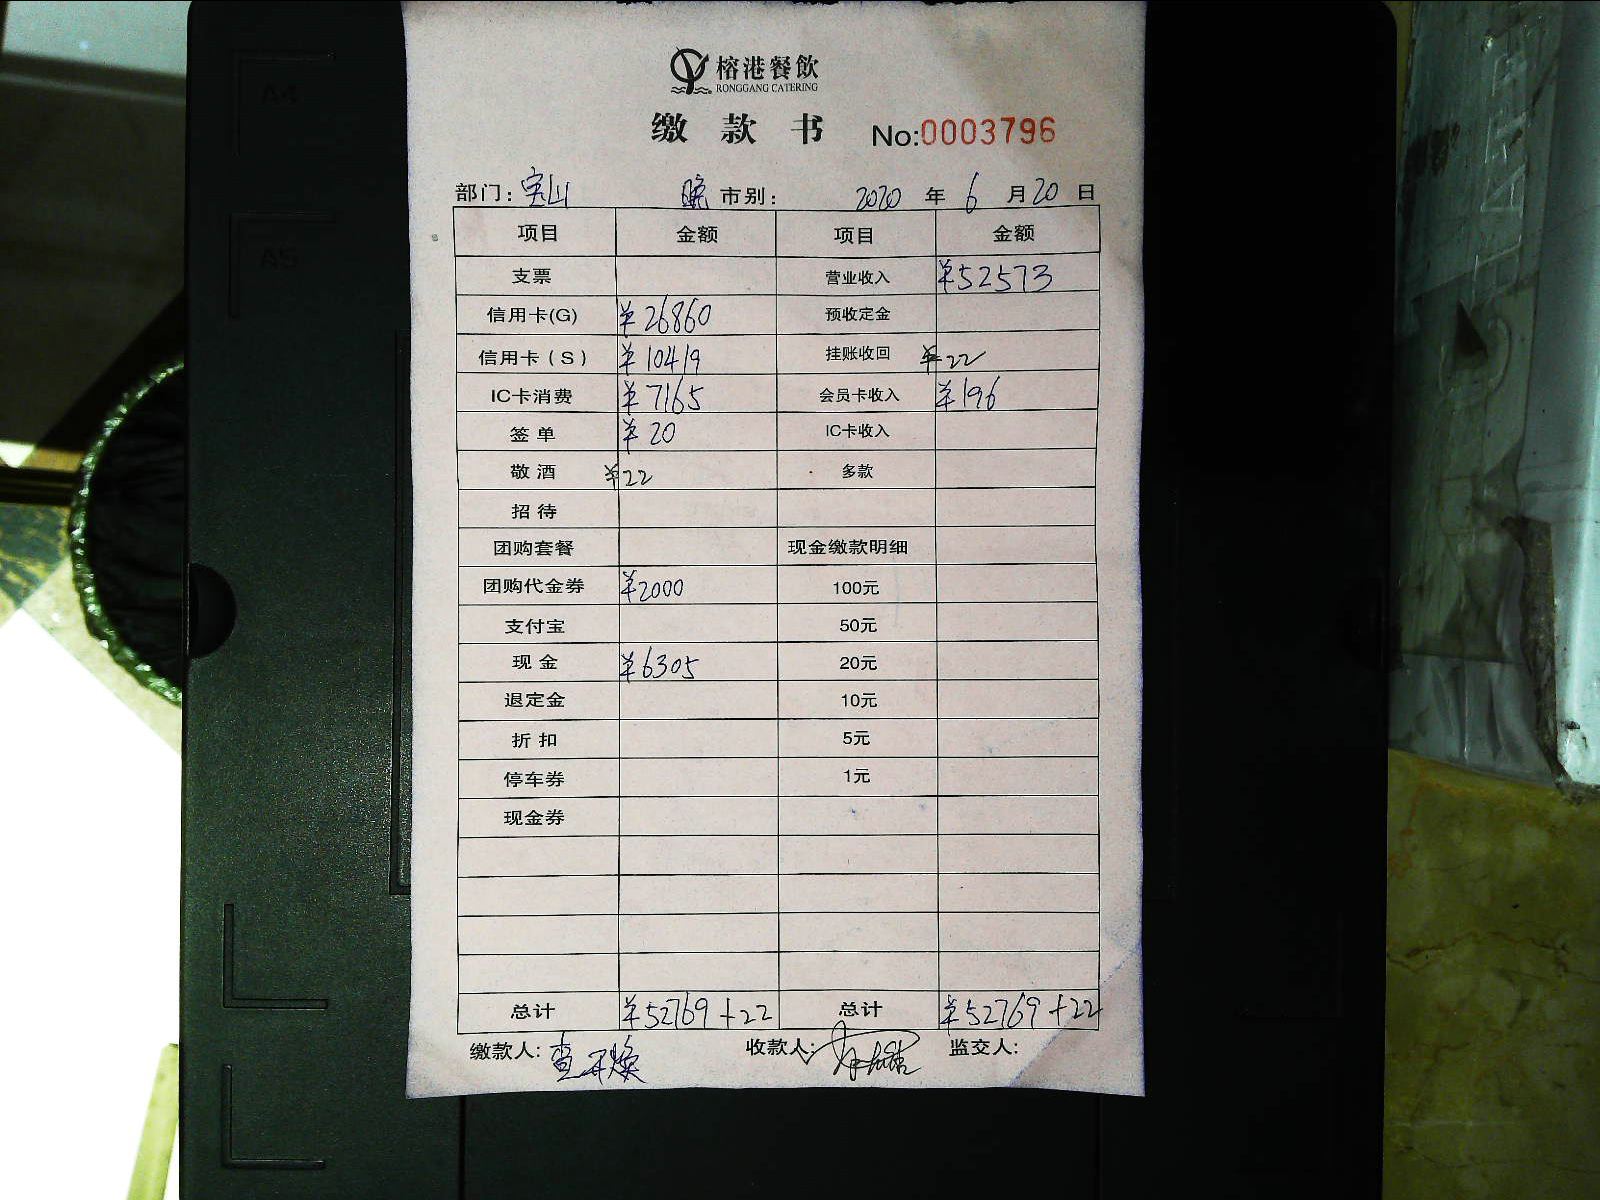 A4
A5
榕港餐飲
RONGGANG CATERING
缴款书 No:0003796
部门: 宝山 晚市别: 2020年6月20日
项目 金额 项目 金额
支票 营业收入 ¥52573
信用卡(G) ¥26860 预收定金
信用卡(S) ¥10419 挂账收回 ¥22
IC卡消费 ¥7165 会员卡收入 ¥196
签单 ¥20 IC卡收入
敬酒 ¥22 多款
招待
团购套餐 现金缴款明细
团购代金券 ¥2000 100元
支付宝 50元
现金 ¥6305 20元
退定金 10元
折扣 5元
停车券 1元
现金券
总计 ¥52769+22 总计 ¥52769+22
缴款人: 收款人: 监交人: